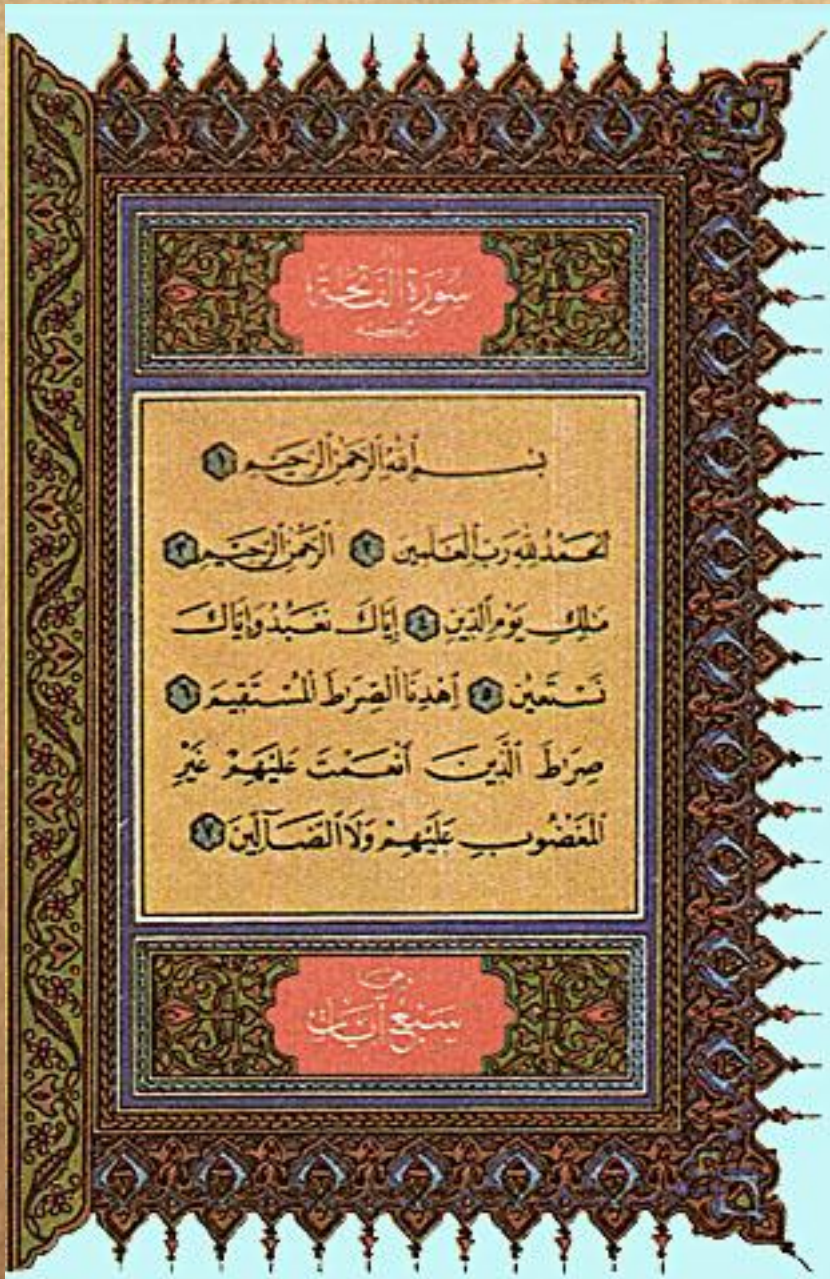 سُورَةُ الفَاتِحَةِ
بِسْمِ ٱللَّهِ ٱلرَّحْمَٰنِ ٱلرَّحِيمِ ١
ٱلْحَمْدُ لِلَّهِ رَبِّ ٱلْعَٰلَمِينَ ٢ ٱلرَّحْمَٰنِ ٱلرَّحِيمِ ٣
مَٰلِكِ يَوْمِ ٱلدِّينِ ٤ إِيَّاكَ نَعْبُدُ وَإِيَّاكَ
نَسْتَعِينُ ٥ ٱهْدِنَا ٱلصِّرَٰطَ ٱلْمُسْتَقِيمَ ٦
صِرَٰطَ ٱلَّذِينَ أَنْعَمْتَ عَلَيْهِمْ غَيْرِ
ٱلْمَغْضُوبِ عَلَيْهِمْ وَلَا ٱلضَّآلِّينَ ٧
سَبْعُ آيَاتٍ